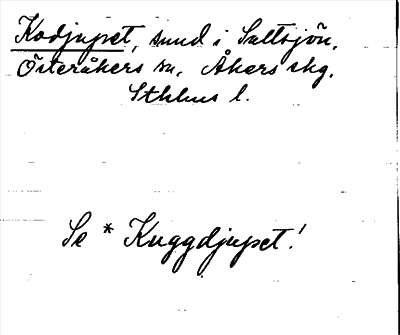 Kodjupet, sund i Saltsjön,
Österåkers sn, Åkers skg.
Sthlms l.
Se * Kuggdjupet!